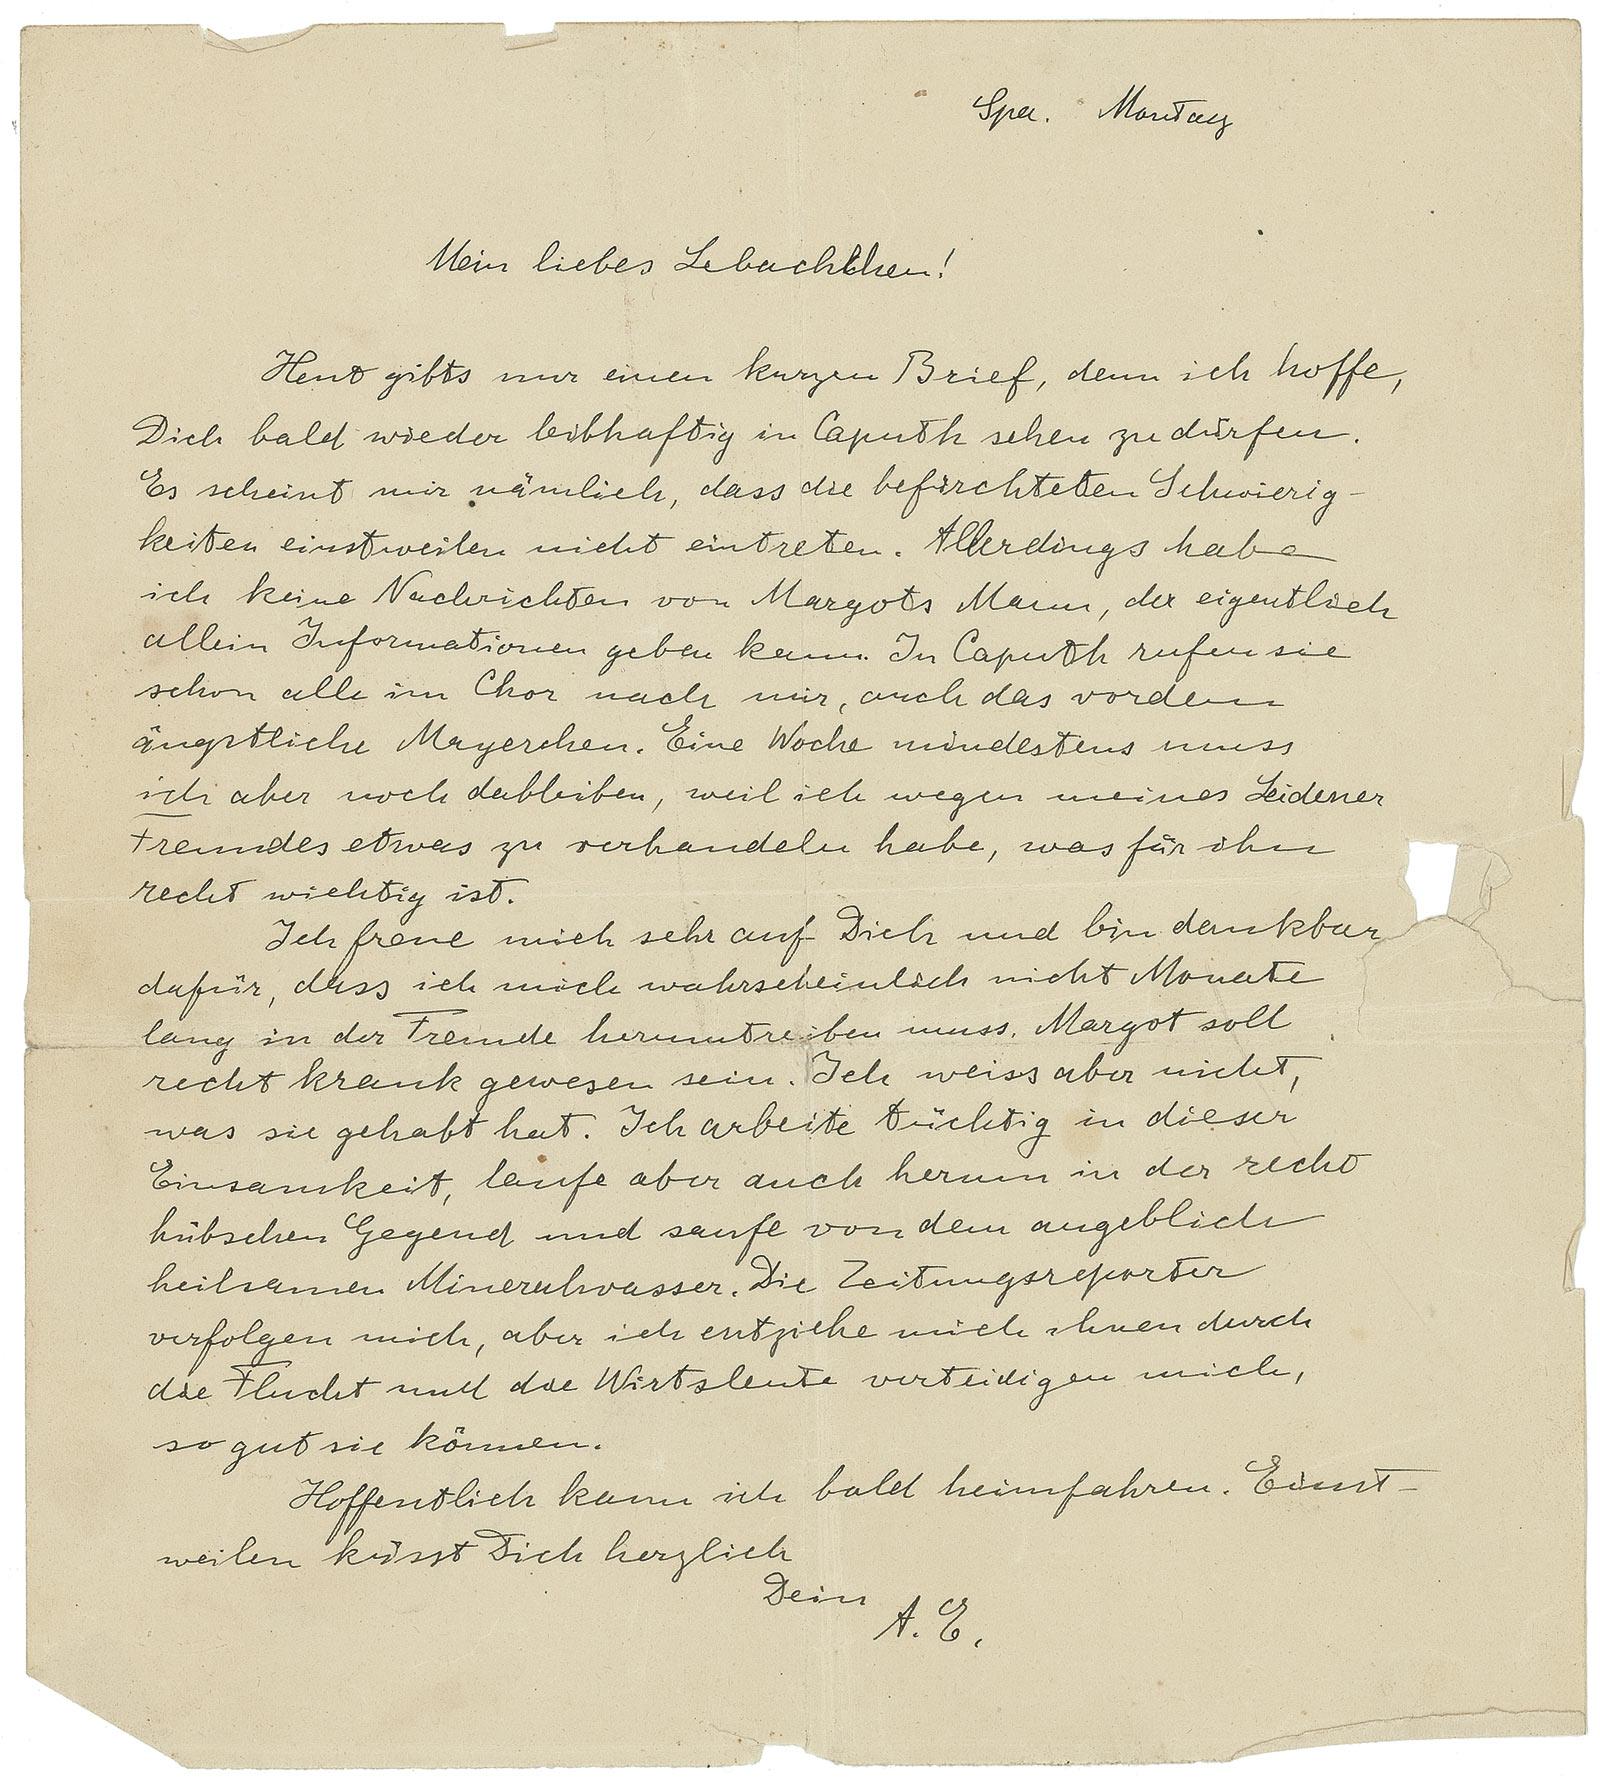 Spa. Montag
Mein liebes Lebachlchen!
Heut gibts nur einen kurzen Brief, denn ich hoffe,
Dich bald wieder leibhaftig in Caputh sehen zu dürfen.
Es scheint mir nämlich, dass die befürchteten Schwierig-
keiten einstweilen nicht eintreten. Allerdings habe
ich keine Nachrichten von Margots Mann, der eigentlich
allein Informationen geben kann. In Caputh rufen sie
schon alle im Chor nach mir, auch das vordem
ängstliche Mayerchen. Eine Woche mindestens muss
ich aber noch dableiben, weil ich wegen meines Leidener
Freundes etwas zu verhandeln habe, was für ihn
recht wichtig ist.
Ich freue mich sehr auf Dich und bin dankbar
dafür, dass ich mich wahrscheinlich nicht Monate
lang in der Fremde herumtreiben muss. Margot soll
recht krank gewesen sein. Ich weiss aber nicht,
was sie gehabt hat. Ich arbeite tüchtig in dieser
Einsamkeit, laufe aber auch herum in der recht
hübschen Gegend und saufe von dem angeblich
heilsamen Mineralwasser. Die Zeitungsreporter
verfolgen mich, aber ich entziehe mich ihnen durch
die Flucht und die Wirtsleute verteidigen mich,
so gut sie können.
Hoffentlich kann ich bald heimfahren. Einst-
weilen küsst Dich herzlich
Dein
A. E.